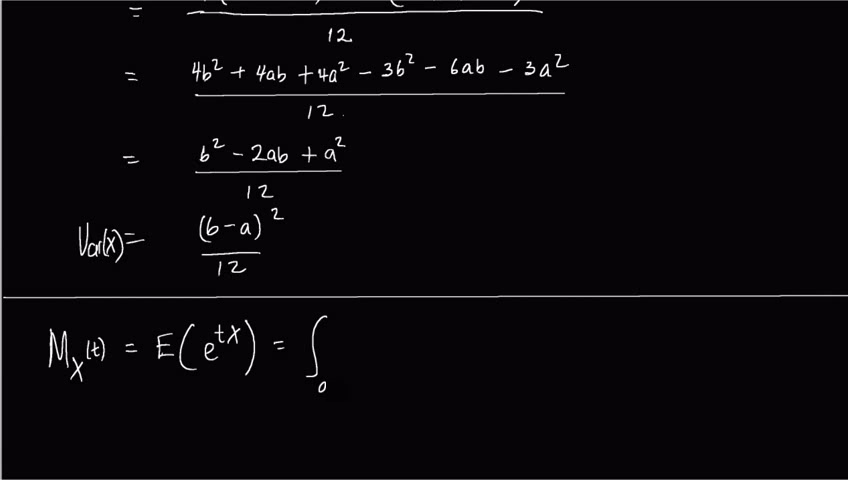 =
12
= 4b² + 4ab + 4a² - 3b² - 6ab - 3a²
12
= b² - 2ab + a²
12
Var(x) = (b-a)²
12
M_X(t) = E(e^{tX}) = ∫₀